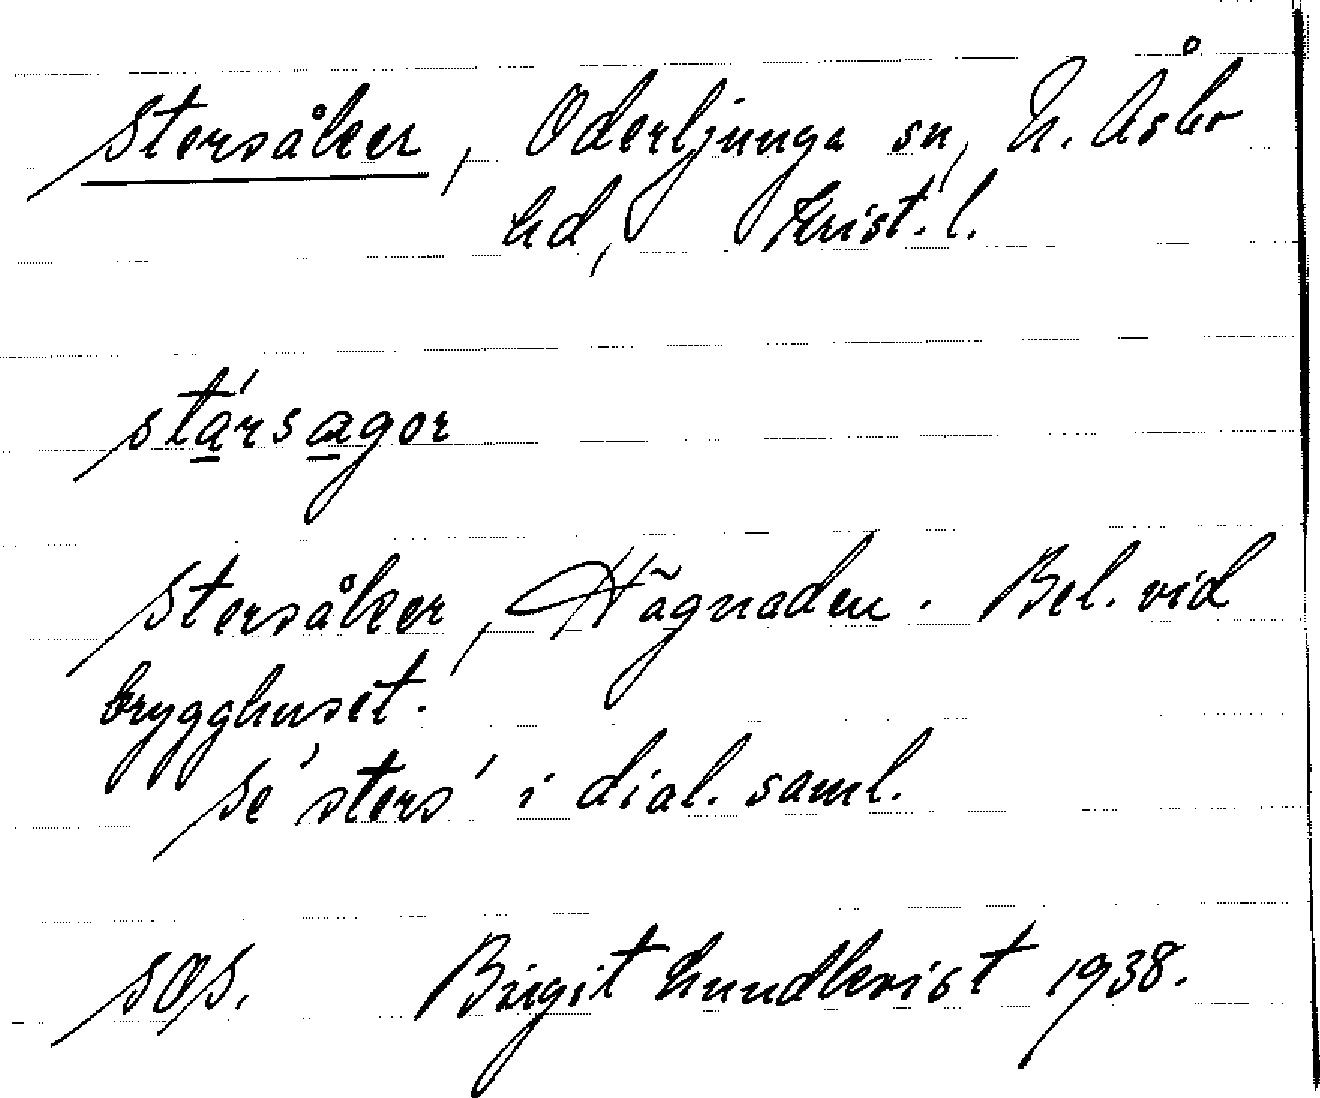 Stersåker, Oderljunga sn, N. Åsbo
hd, Krist. l.
stársagor
Stersåker, Hägnaden. Bel. vid
brygghuset.
Se 'sters' i dial. saml.
SOS. Birgit Lundkvist 1938.